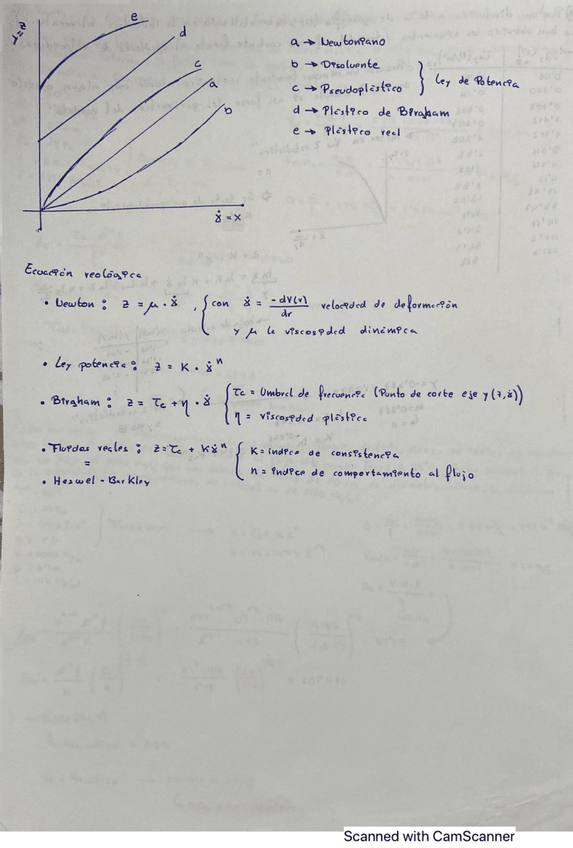 y=z
e
d
c
a
b
γ̇ = x
a → Newtoniano
b → Disolvente
c → Pseudoplástico
} Ley de Potencia
d → Plástico de Birgham
e → Plástico real
Ecuación reológica
• Newton : z = μ · γ̇ , { con γ̇ = -dV(r)/dr velocidad de deformación
y μ la viscosidad dinámica
• Ley potencia : z = K · γ̇ⁿ
• Birgham : z = τc + η · γ̇ { τc = Umbral de frecuencia (Punto de corte eje y (z,γ̇))
η = viscosidad plástica
• Fluidos reales : z = τc + Kγ̇ⁿ { K = índice de consistencia
=
n = índice de comportamiento al flujo
• Heswel - Barkley
Scanned with CamScanner